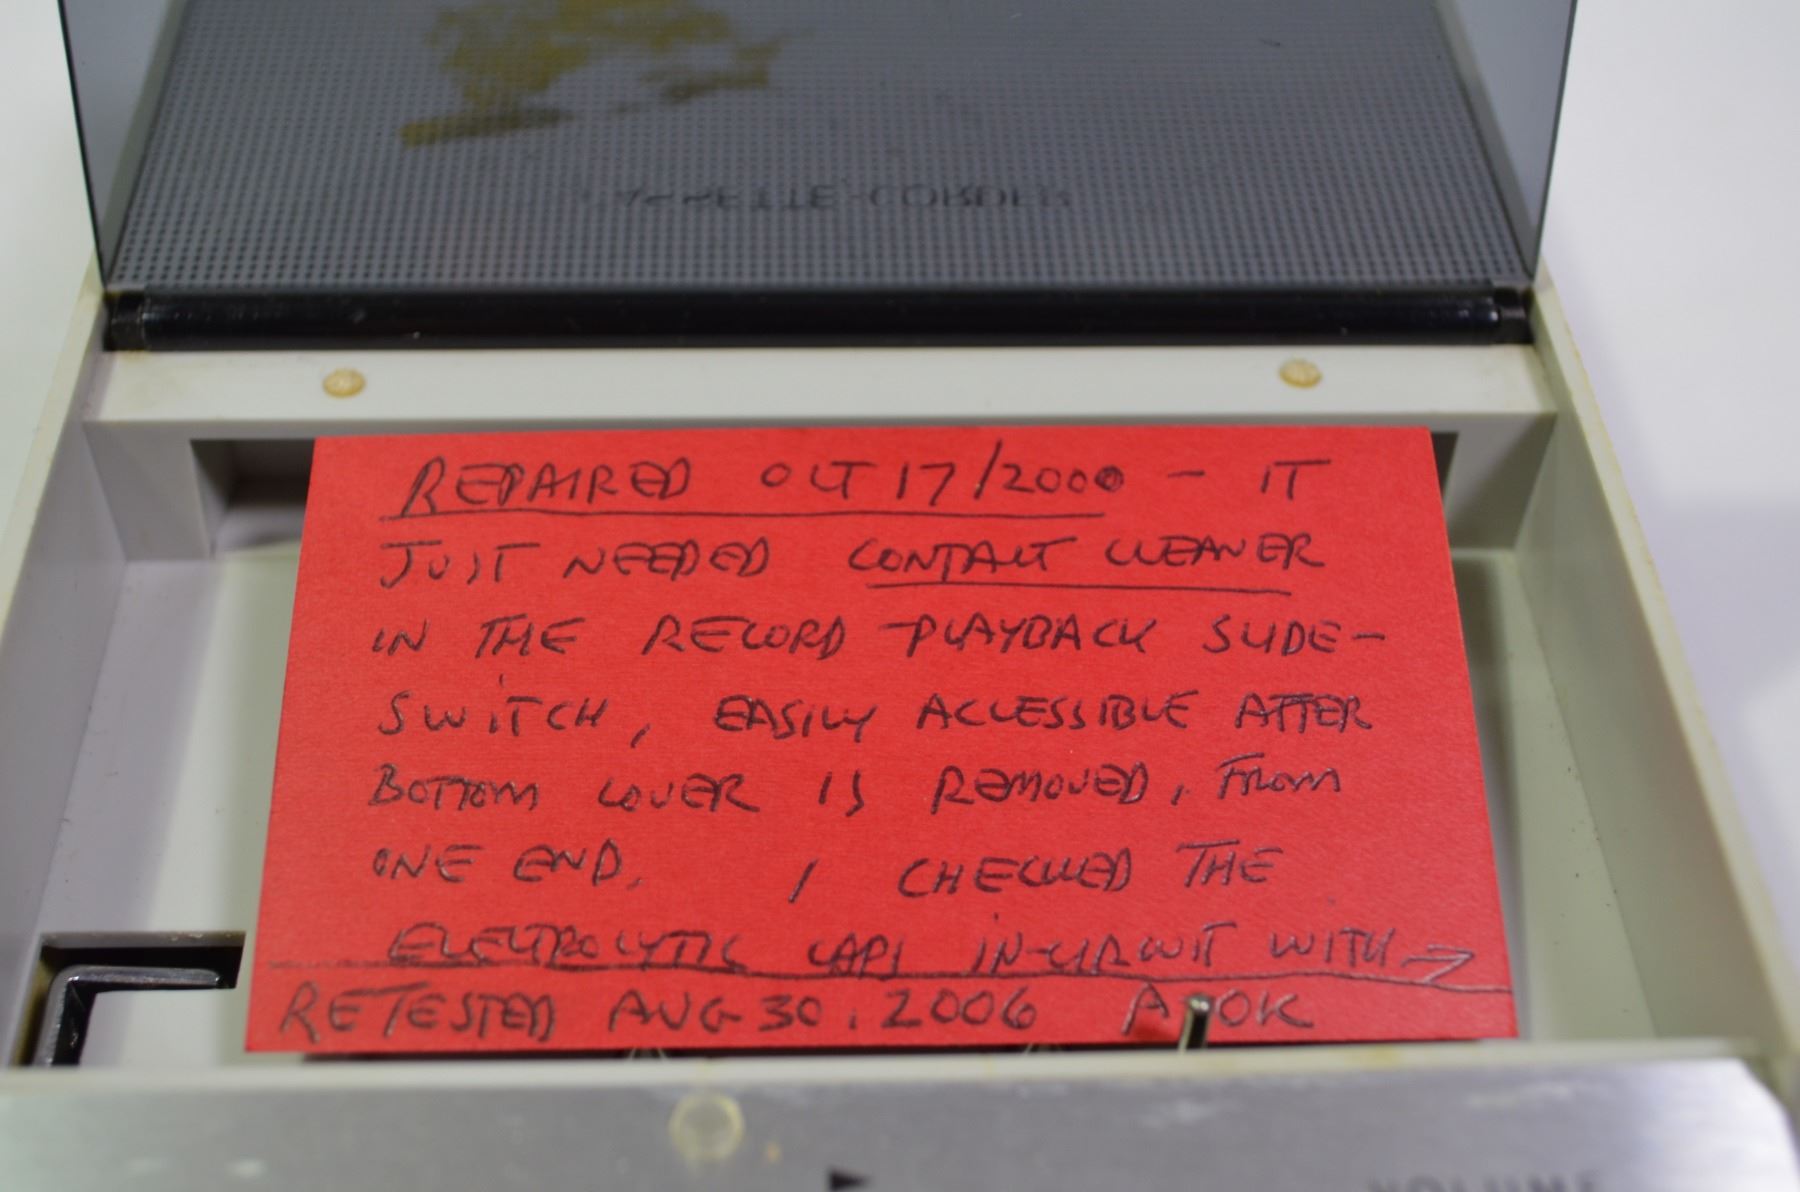 CASSETTE-CORDER
REPAIRED OCT 17/2000 - IT
JUST NEEDED CONTACT CLEANER
IN THE RECORD-PLAYBACK SLIDE-
SWITCH, EASILY ACCESSIBLE AFTER
BOTTOM COVER IS REMOVED, FROM
ONE END. I CHECKED THE
ELECTROLYTIC CAPS IN-CIRCUIT WITH →
RETESTED AUG 30, 2006 A-OK
VOLUME